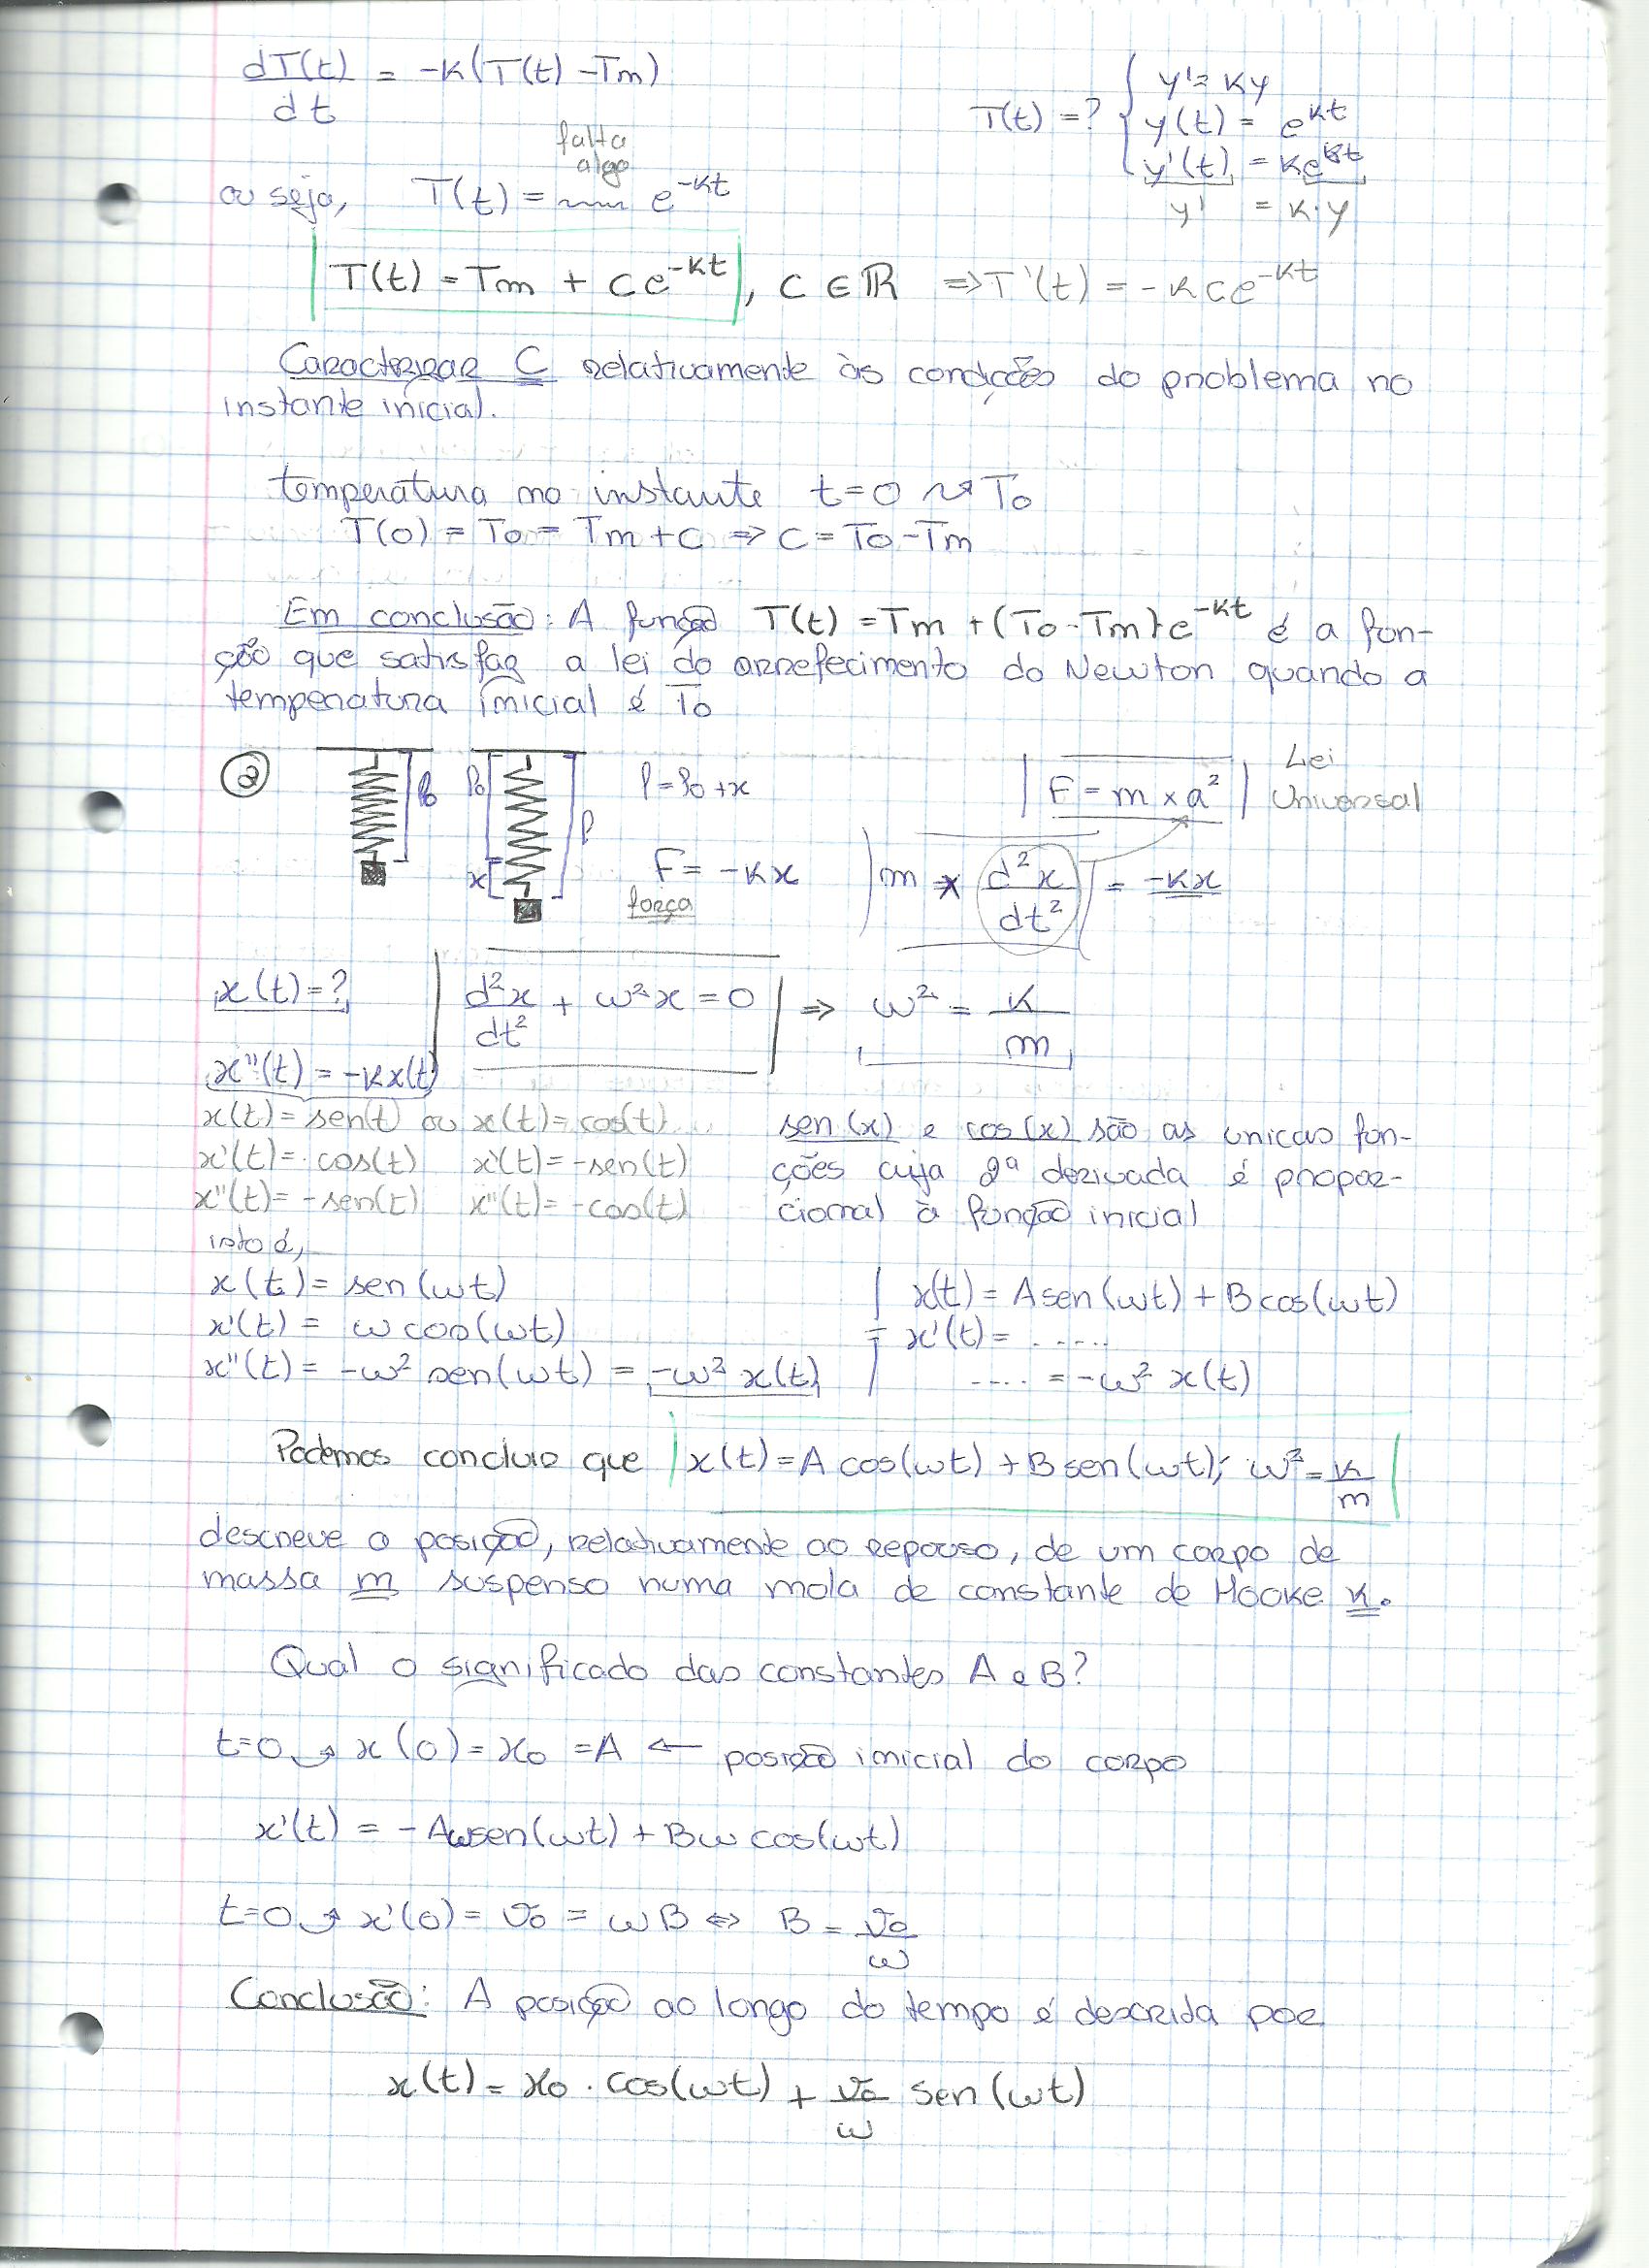 dT(t)/dt = -k(T(t) - Tm)
T(t) = ? { y' = ky
y(t) = e^kt
y'(t) = ke^kt
y' = k.y
falta algo
ou seja, T(t) = ~~~ e^-kt
T(t) = Tm + Ce^-kt, C ∈ ℝ ⇒ T'(t) = -kCe^-kt
Caracterizar C relativamente às condições do problema no
instante inicial.
temperatura no instante t=0 ⇝ To
T(0) = To = Tm + C ⇒ C = To - Tm
Em conclusão: A função T(t) = Tm + (To - Tm)e^-kt é a fun-
ção que satisfaz a lei do arrefecimento do Newton quando a
temperatura inicial é To
② l0 l0 l = l0 + x F = m × a² Lei
Universal
l
x F = -kx m × d²x/dt² = -kx
força
x(t) = ? d²x/dt² + ω²x = 0 ⇒ ω² = k/m
x''(t) = -kx(t)
x(t) = sen(t) ou x(t) = cos(t) sen(x) e cos(x) são as unicas fun-
x'(t) = cos(t) x'(t) = -sen(t) ções cuja 2ª derivada é propor-
x''(t) = -sen(t) x''(t) = -cos(t) cional à função inicial
isto é,
x(t) = sen(ωt) x(t) = A sen(ωt) + B cos(ωt)
x'(t) = ω cos(ωt) = x'(t) = .....
x''(t) = -ω² sen(ωt) = -ω² x(t) .... = -ω² x(t)
Podemos concluir que x(t) = A cos(ωt) + B sen(ωt); ω² = k/m
descreve a posição, relativamente ao repouso, de um corpo de
massa m suspenso numa mola de constante de Hooke k.
Qual o significado das constantes A e B?
t=0 ↝ x(0) = x0 = A ← posição inicial do corpo
x'(t) = -Aωsen(ωt) + Bω cos(ωt)
t=0 ↝ x'(0) = v0 = ωB ⇔ B = v0/ω
Conclusão: A posição ao longo do tempo é descrida por
x(t) = x0 . cos(ωt) + v0/ω sen(ωt)